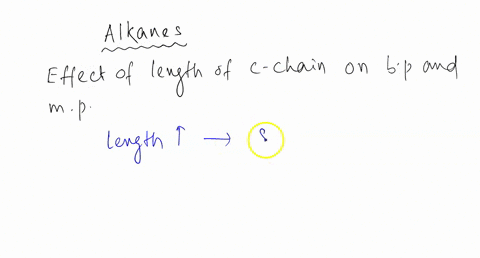 Alkanes
Effect of length of c-chain on b.p and
m.p.
length ↑ →